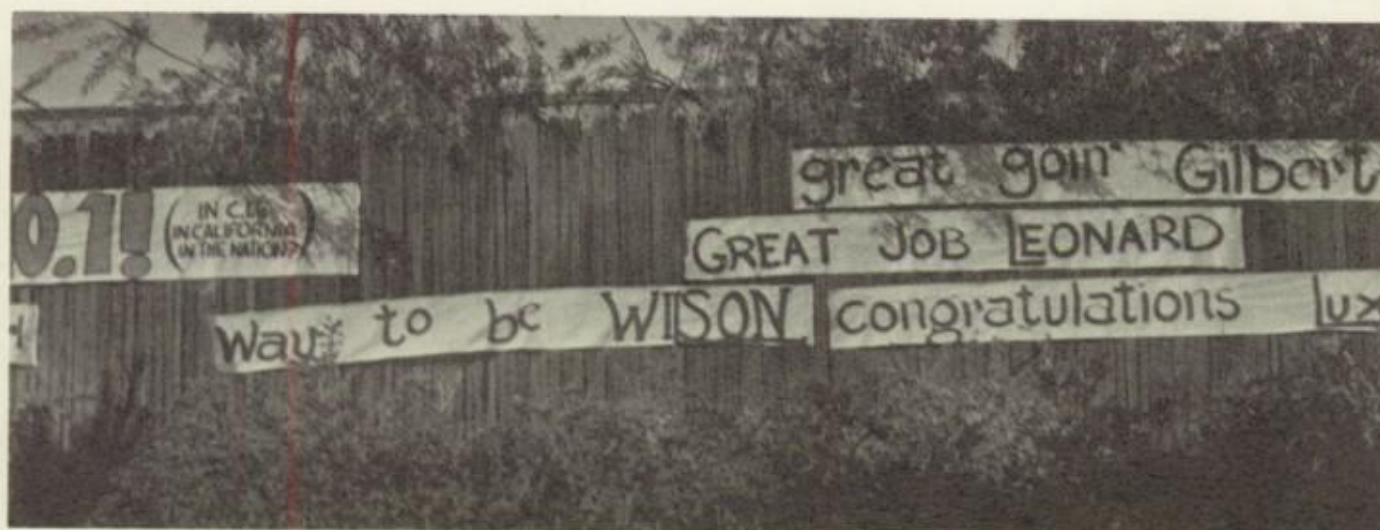 0.1!
(IN C.I.F.
IN CALIFORNIA
IN THE NATION?)
great goin' Gilbert
GREAT JOB LEONARD
Way to be WILSON
congratulations Lux